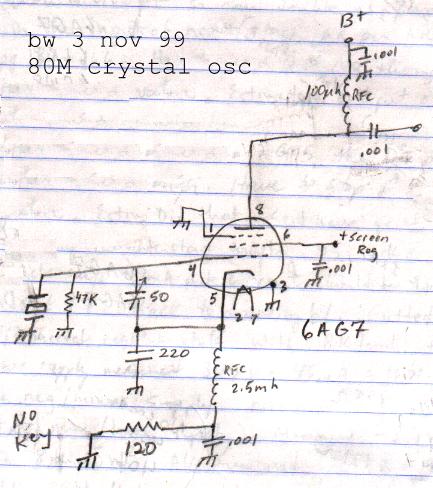 bw 3 nov 99
80M crystal osc
B+
.001
100µh RFC
.001
8
1
6
+ Screen
Reg
.001
4
5
3
2 7
6AG7
47K
50
220
RFC
2.5mh
No
Key
120
.001